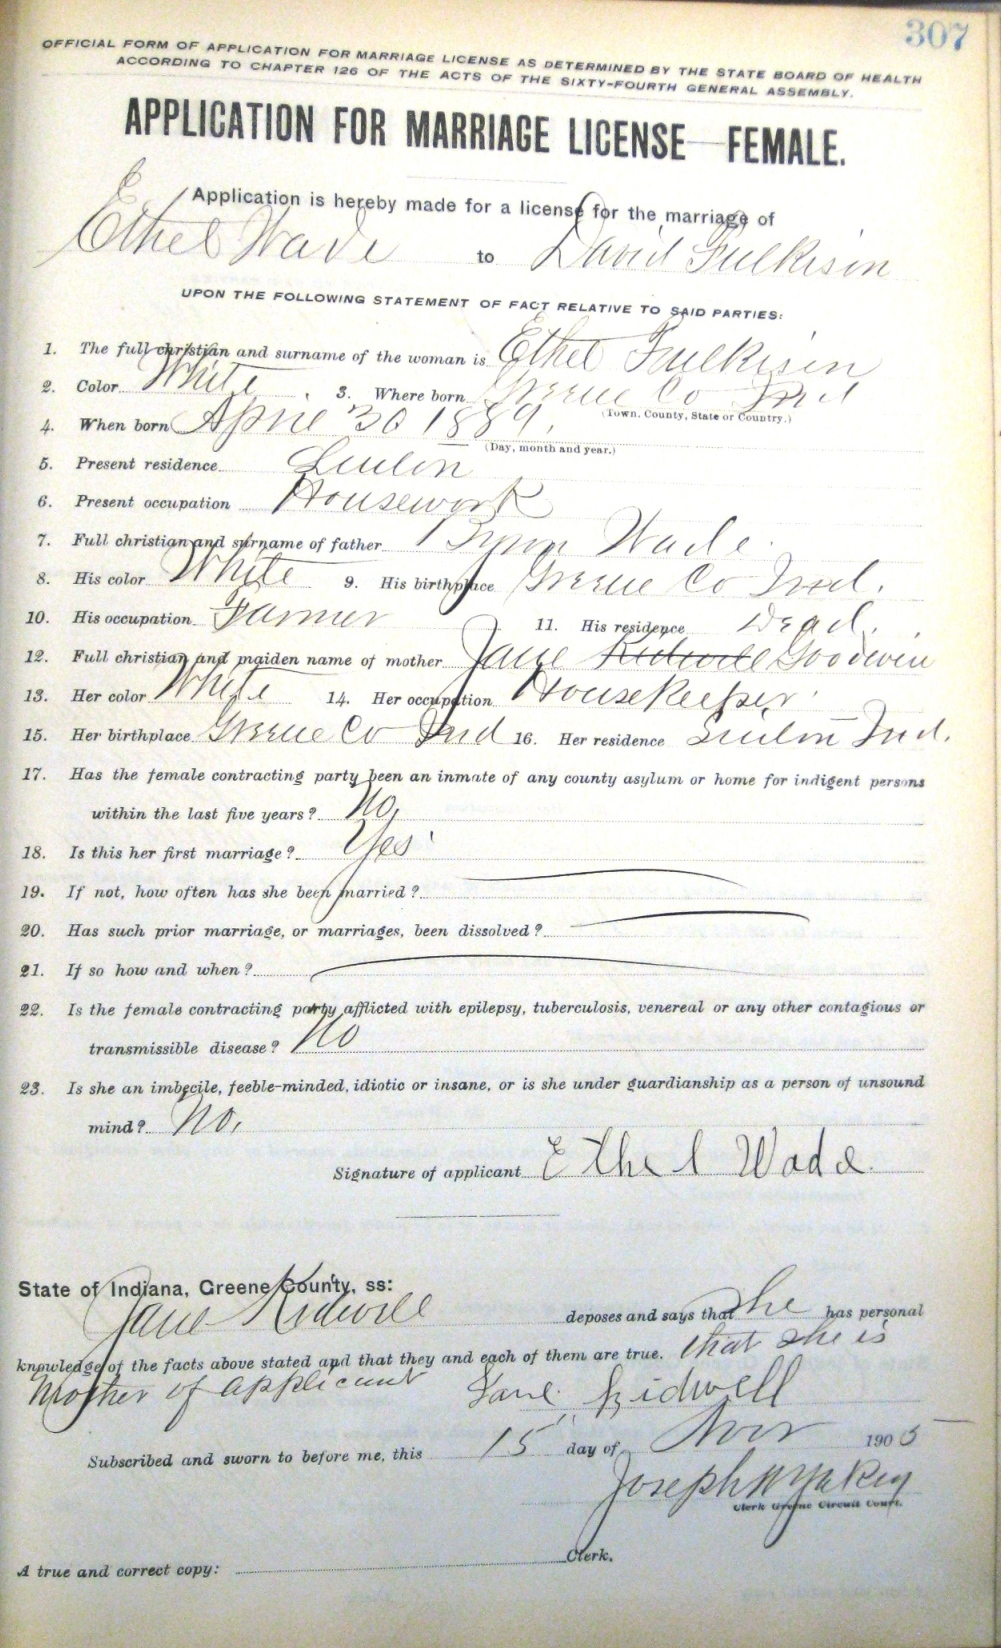 307
OFFICIAL FORM OF APPLICATION FOR MARRIAGE LICENSE AS DETERMINED BY THE STATE BOARD OF HEALTH
ACCORDING TO CHAPTER 126 OF THE ACTS OF THE SIXTY-FOURTH GENERAL ASSEMBLY.
APPLICATION FOR MARRIAGE LICENSE—FEMALE.
Application is hereby made for a license for the marriage of
Ethel Wade to David Fulkison
UPON THE FOLLOWING STATEMENT OF FACT RELATIVE TO SAID PARTIES:
1. The full christian and surname of the woman is Ethel Fulkison
2. Color White 3. Where born Greene Co Ind
(Town, County, State or Country.)
4. When born April 30 1889.
(Day, month and year.)
5. Present residence Linton
6. Present occupation Housework
7. Full christian and surname of father Wade.
8. His color White 9. His birthplace Greene Co Ind.
10. His occupation Farmer 11. His residence Dead.
12. Full christian and maiden name of mother Jane Kidwell Goodwin
13. Her color White 14. Her occupation Housekeeper
15. Her birthplace Greene Co Ind 16. Her residence Linton Ind.
17. Has the female contracting party been an inmate of any county asylum or home for indigent persons
within the last five years? No,
18. Is this her first marriage? Yes
19. If not, how often has she been married?
20. Has such prior marriage, or marriages, been dissolved?
21. If so how and when?
22. Is the female contracting party afflicted with epilepsy, tuberculosis, venereal or any other contagious or
transmissible disease? No
23. Is she an imbecile, feeble-minded, idiotic or insane, or is she under guardianship as a person of unsound
mind? No,
Signature of applicant Ethel Wade.
State of Indiana, Greene County, ss:
Jane Kidwell deposes and says that she has personal
knowledge of the facts above stated and that they and each of them are true. that she is
Mother of applicant Jane Kidwell
Subscribed and sworn to before me, this 15 day of Nov 1905
Joseph W Yakey
Clerk Greene Circuit Court.
A true and correct copy: Clerk.